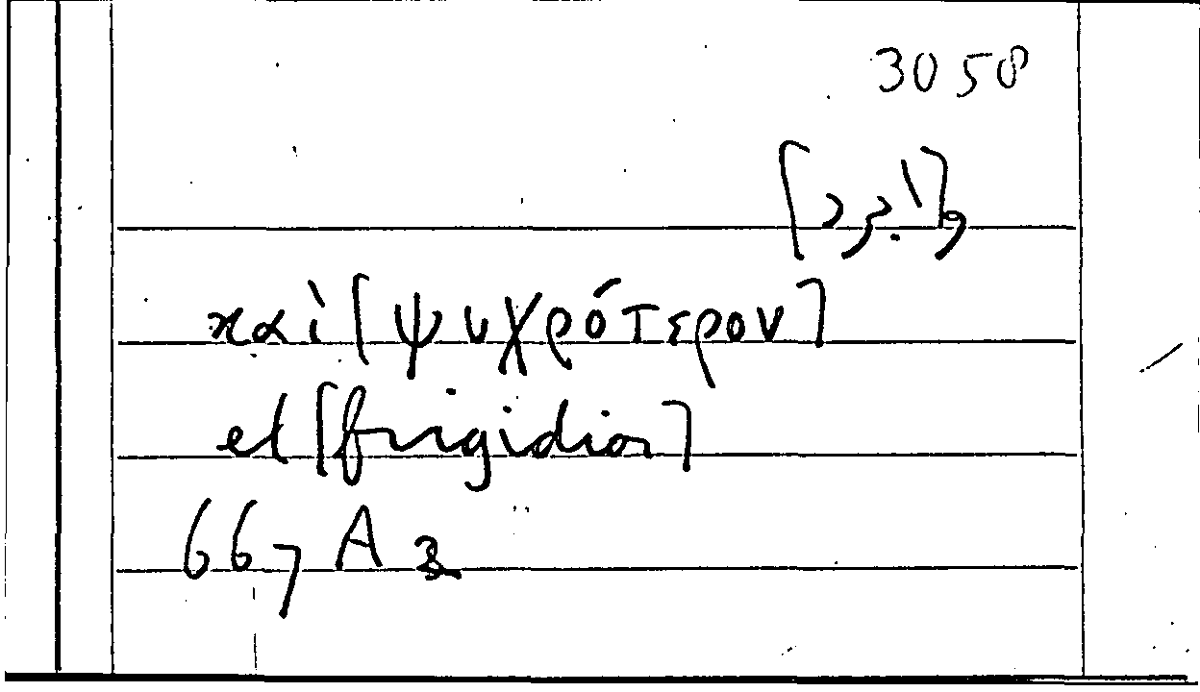 3058
و[ابرد]
καὶ [ψυχρότερον]
et [frigidior]
667 A 3